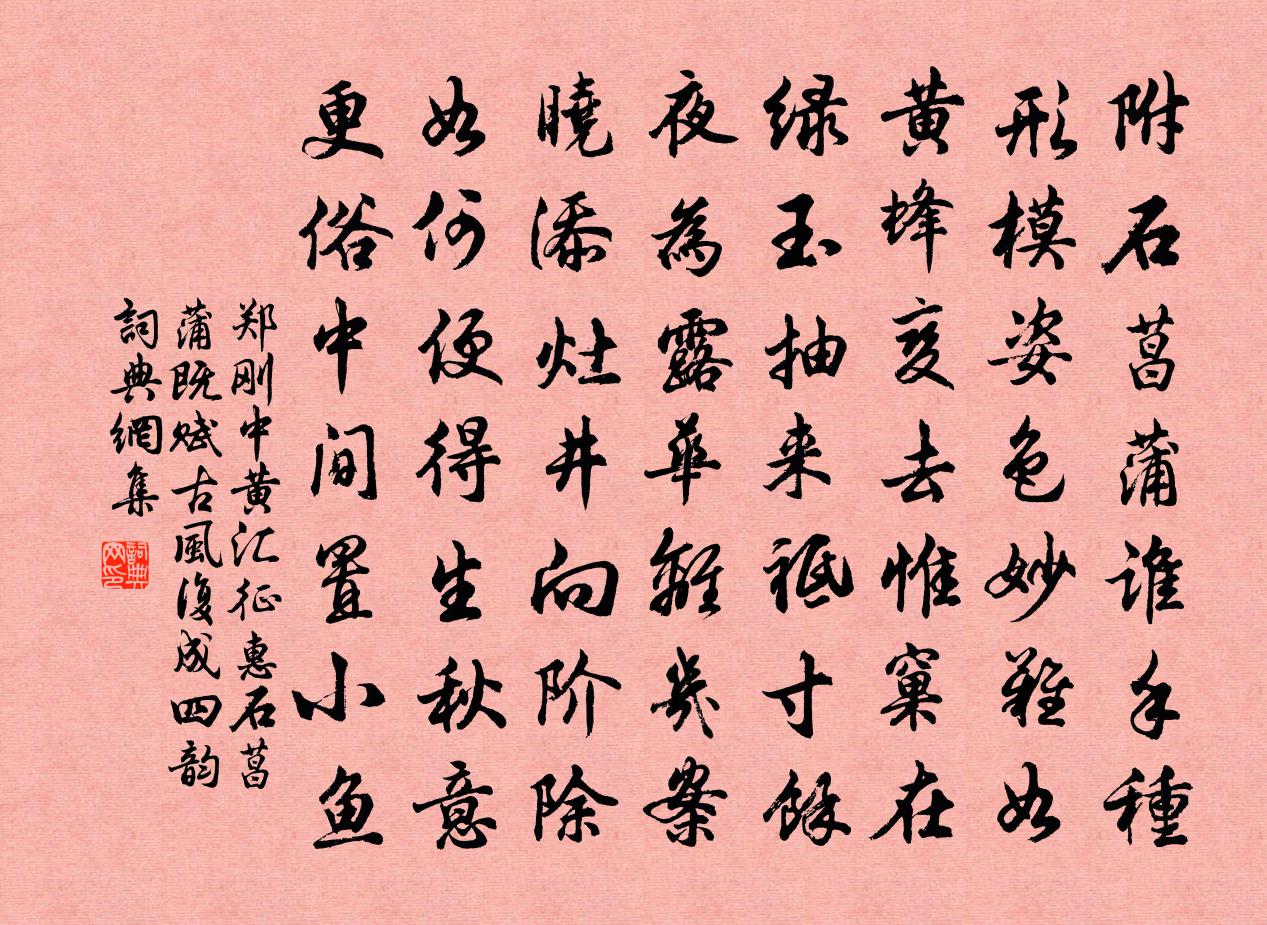 附石菖蒲谁手種
形模姿色妙難如
黄蜂变去惟窠在
绿玉抽来祗寸餘
夜為露華離幾案
曉添灶井向阶除
如何便得生秋意
更俗中间置小鱼
郑刚中黄汇征惠石菖
蒲既赋古風復成四韵
詞典網集
詞典网印